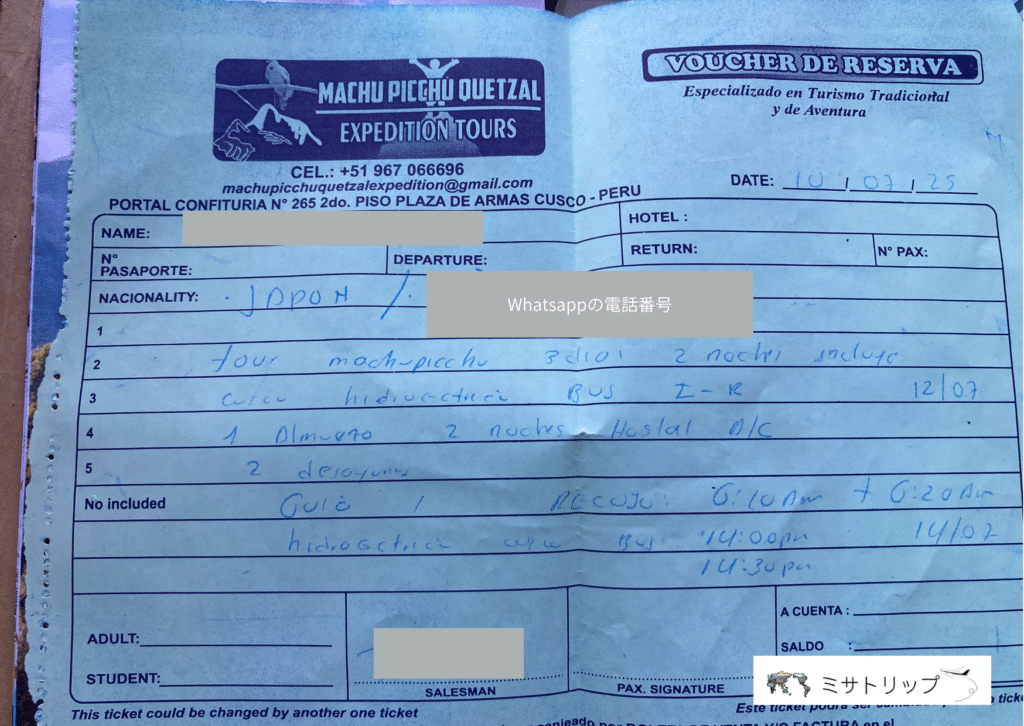 MACHU PICCHU QUETZAL
EXPEDITION TOURS
VOUCHER DE RESERVA
Especializado en Turismo Tradicional
y de Aventura
CEL.: +51 967 066696
machupicchuquetzalexpedition@gmail.com
PORTAL CONFITURIA N° 265 2do. PISO PLAZA DE ARMAS CUSCO - PERU
DATE: 10 / 07 / 25
NAME:
HOTEL :
N° PASAPORTE:
DEPARTURE:
RETURN:
N° PAX:
NACIONALITY: JAPON /
Whatsappの電話番号
1
2 tour machupicchu 3 dias 2 noches incluye
3 cusco hidroectrica BUS I-R 12/07
4 1 Almuerzo 2 noches Hostal A/C
5 2 desayunos
No included Guia / RECOJO: 6:10Am + 6:20Am
hidroectrica cusco Bus 14:00pm 14/07
14:30pm
ADULT:
STUDENT:
SALESMAN
PAX. SIGNATURE
A CUENTA :
SALDO :
ミサトリップ
This ticket could be changed by another one ticket
Este ticket podrá ser